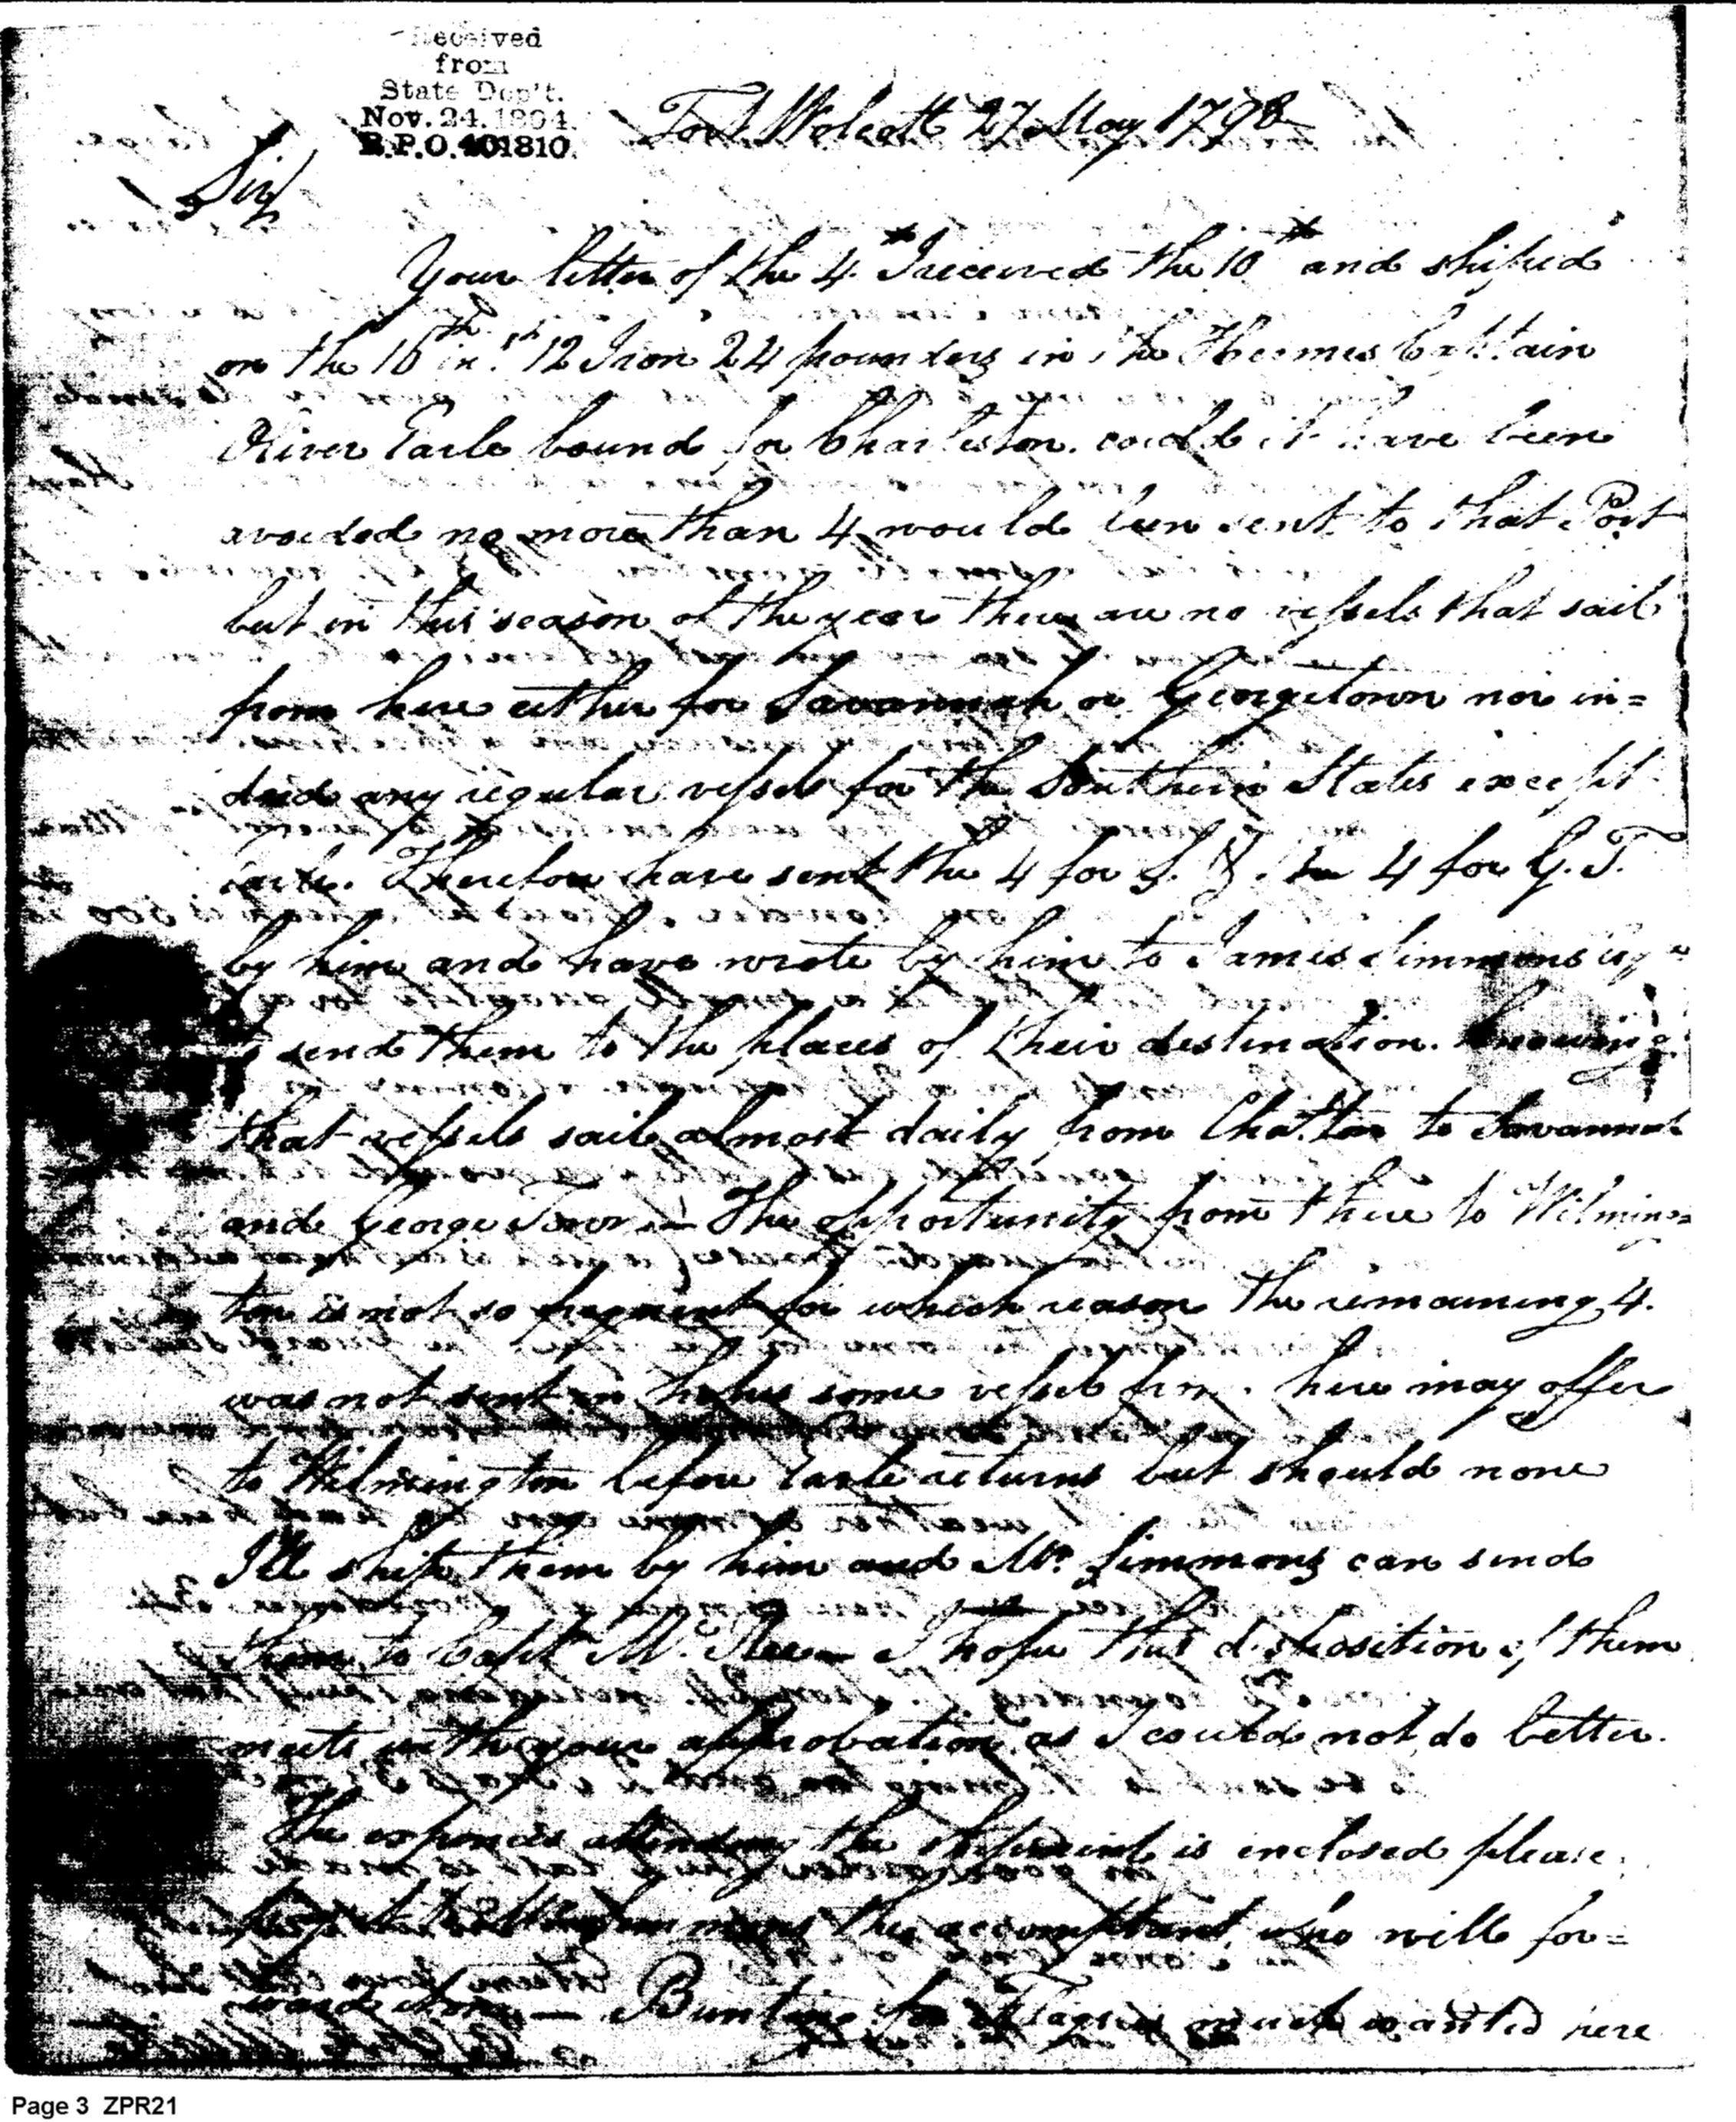 Received
from
State Dep't.
Nov. 24. 1894.
R.P.O. 401810.
Fort Wolcott 27 May 1798
Sir
Your letter of the 4th I received the 10th and shiped
on the 16th inst 12 Iron 24 pounders in the Hermes Captain
Oliver Earle bound for Charleston. could it have been
avoided no more than 4 would been sent to that Port
but in this season of the year there are no vessels that sail
from here either for Savannah or Georgetown nor in=
deed any regular vessels for the Southern States except
Earle. Therefore have sent the 4 for S. & 4 for G. T.
by him and have wrote by him to James Simmons
to send them to the places of their destination. knowing
that vessels sail almost daily from Chaston to Savannah
and George Town — The opportunity from there to Wilming=
ton is not so frequent for which reason the remaining 4.
was not sent in hopes some vessel from here may offer
to Wilmington before Earle returns but should none
I'll ship them by him and Mr. Simmons can send
them to Capt Mc Rea — I hope this disposition of them
meets with your approbation as I could not do better.
The expences attending the shipment is inclosed please
the accomptant who will for=
ward — Bunting for Flags is much wanted here
Page 3 ZPR21